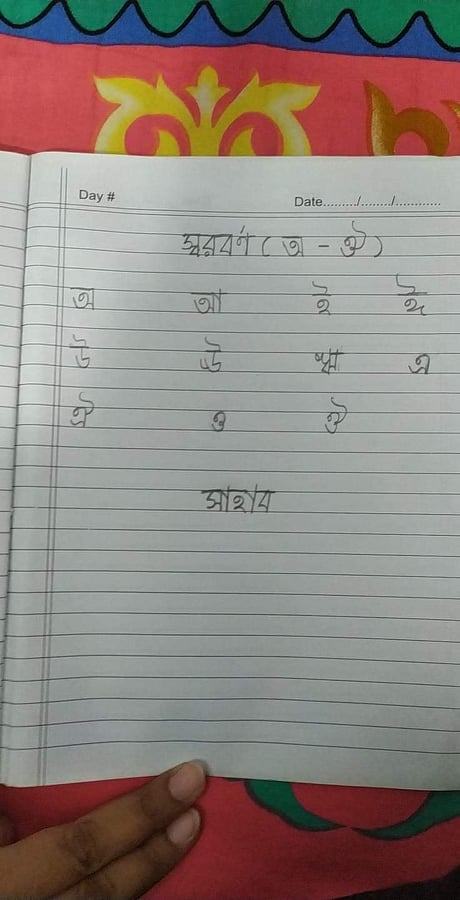 Day #
Date........./......../............
স্বরবর্ণ ( অ - ঔ )
অ আ ই ঈ
উ ঊ ঋ এ
ঐ ও ঔ